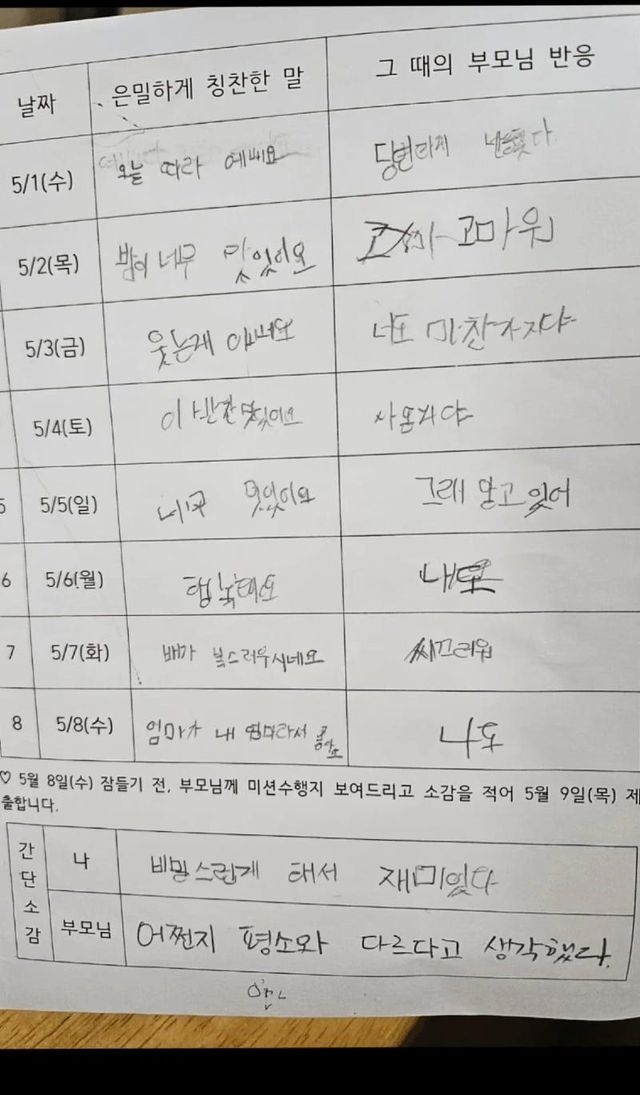 날짜 은밀하게 칭찬한 말 그 때의 부모님 반응
5/1(수) 오늘 따라 에뻐요 당번하게
5/2(목) 밥이 너무 맛있어요 고마워
5/3(금) 웃는게 너도 마찬가지야
5/4(토) 이 반찬 맛있어요
5 5/5(일) 너무 멋있어요 그래 알고 있어
6 5/6(월) 내도
7 5/7(화) 배가 복스러우시네요 씨끄러워
8 5/8(수) 엄마가 내 엄마라서 좋아요 나도
♡ 5월 8일(수) 잠들기 전, 부모님께 미션수행지 보여드리고 소감을 적어 5월 9일(목) 제
출합니다.
간단소감
나 비밀스럽게 해서 재미있다
부모님 어쩐지 평소와 다르다고 생각했다.